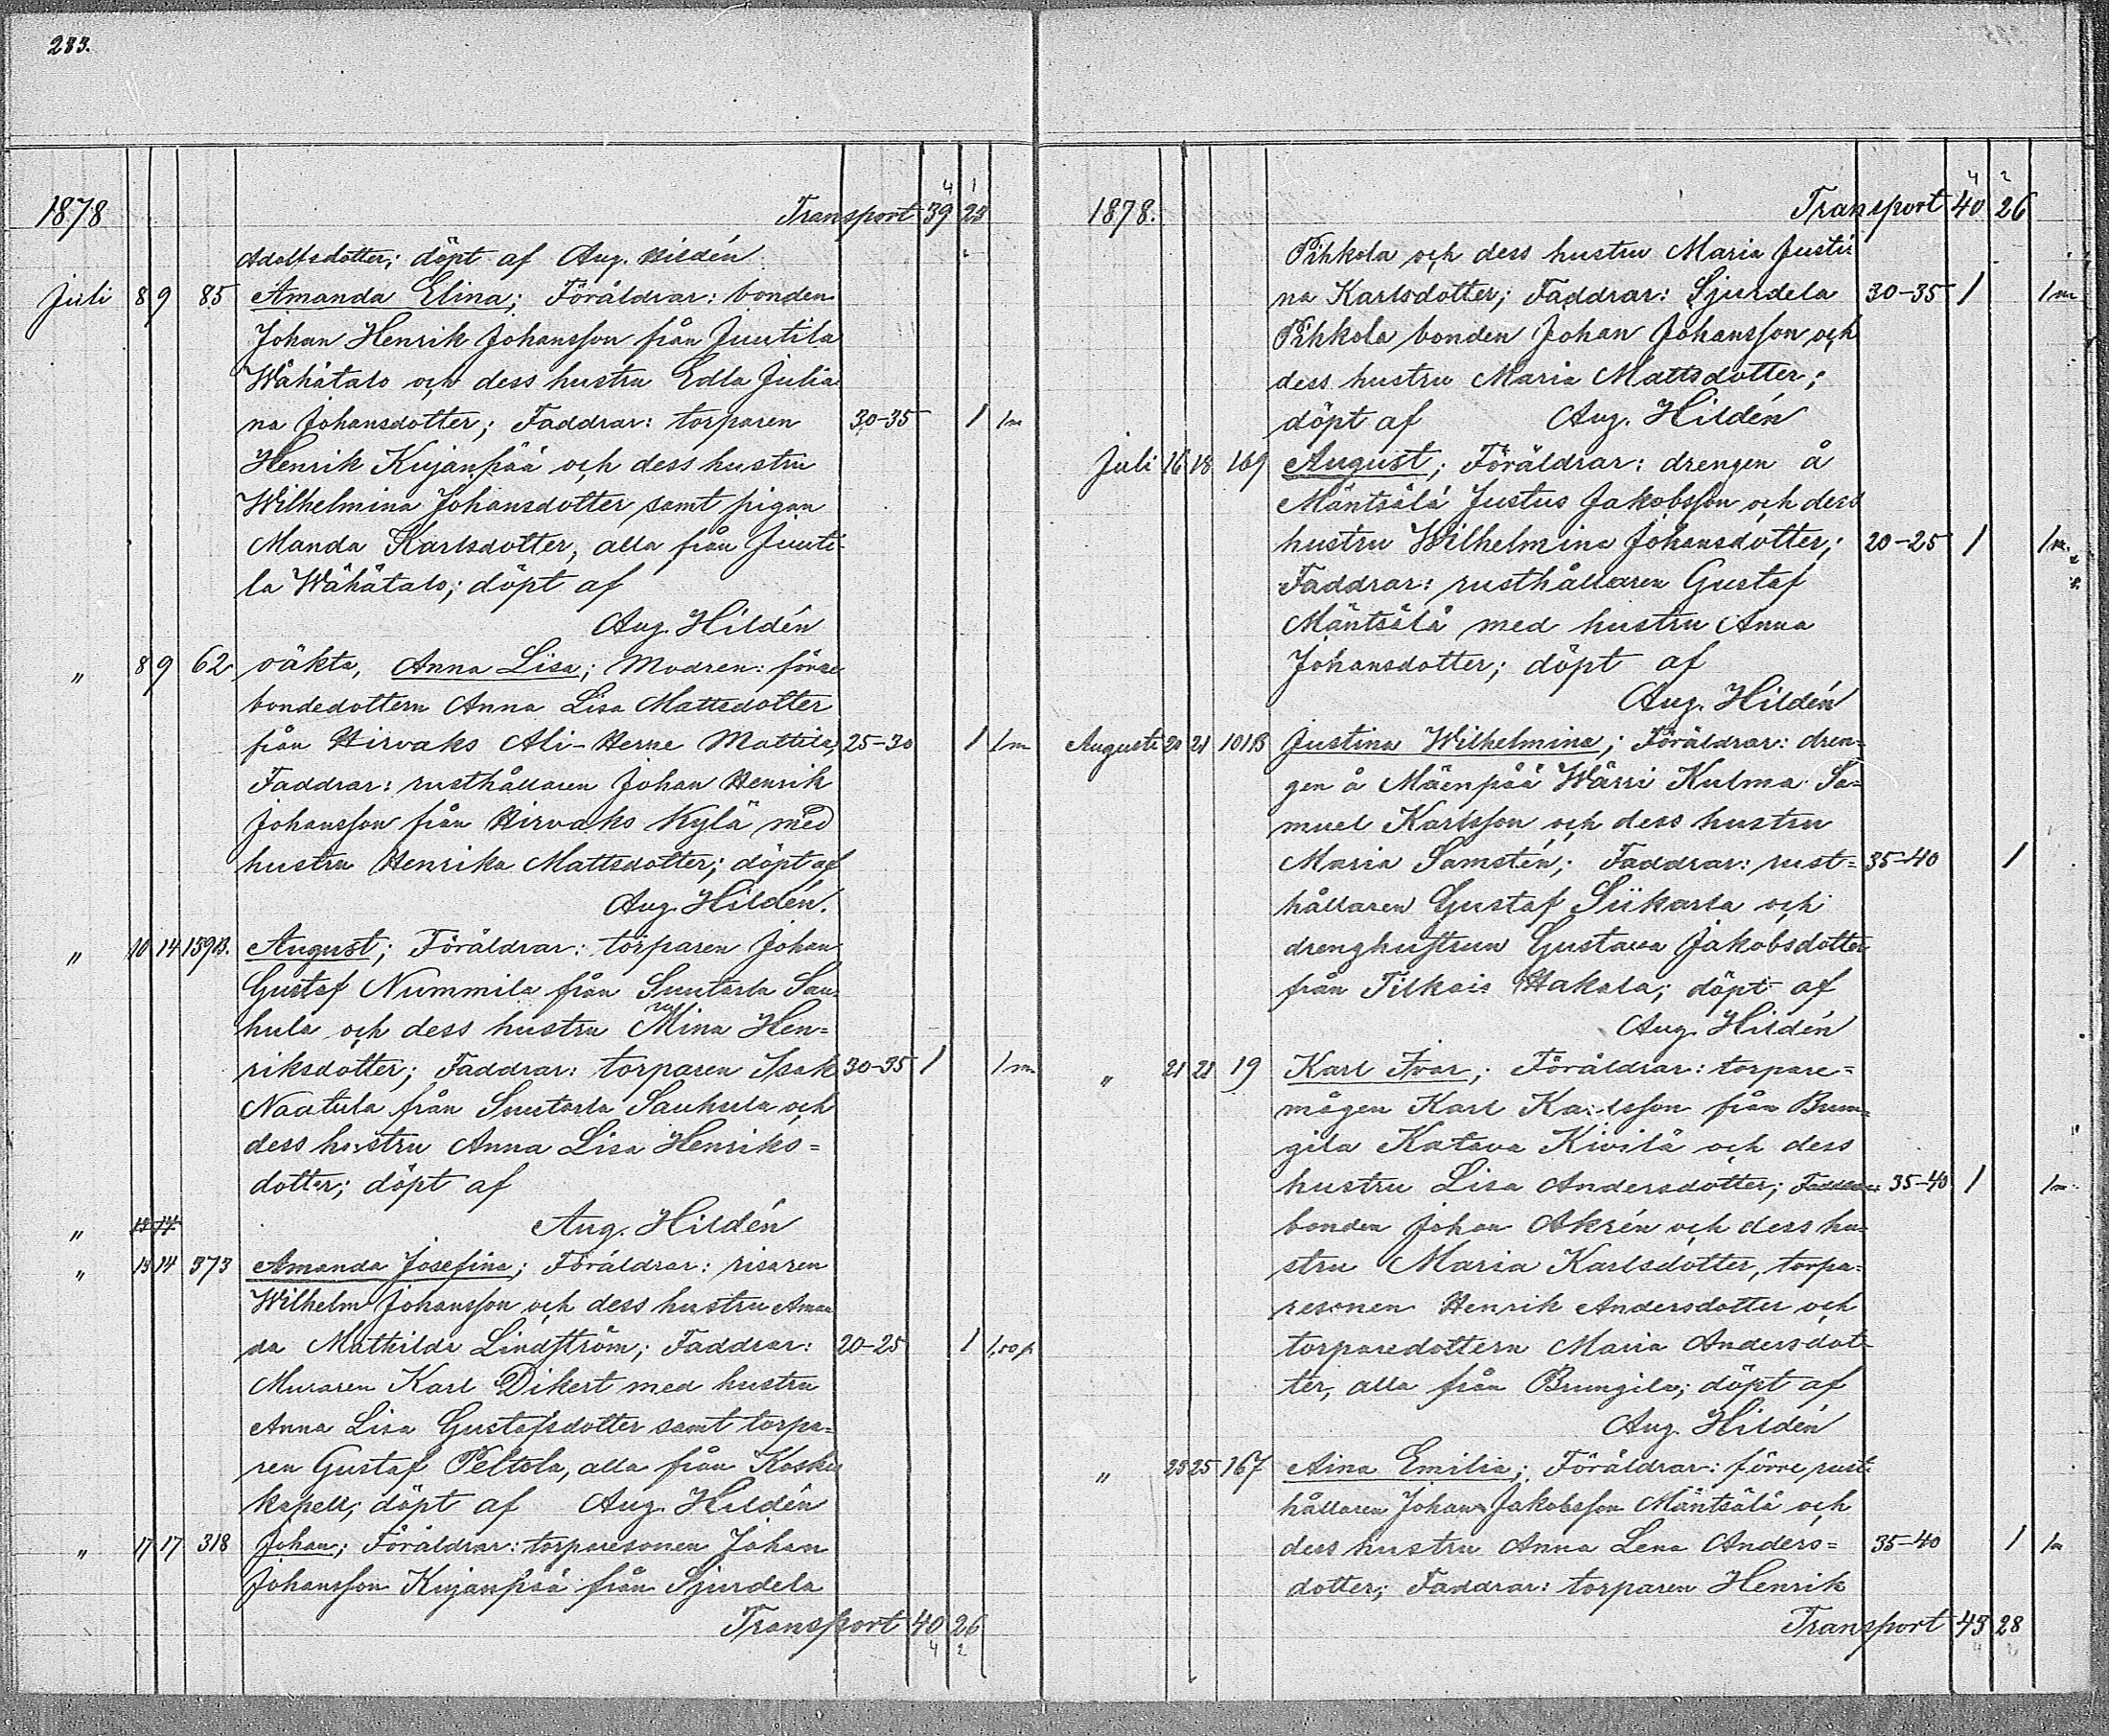 283.
4 1
1878 Transport 39 23
Adolfsdotter; döpt af Aug. Hildén
Juli 8 9 85 Amanda Elina; Föräldrar: bonden
Johan Henrik Johansson från Juutila
Wähätalo och dess hustru Edla Julia
na Johansdotter; Faddrar: torparen 30-35 1 1m
Henrik Kujanpää och dess hustru
Wilhelmina Johansdotter samt pigan
Manda Karlsdotter, alla från Juuti-
la Wähätalo; döpt af
Aug. Hildén
" 8 9 62 oäkta, Anna Lisa; Modren: förre
bondedottern Anna Lisa Mattsdotter
från Hirvaks Ali-Herne Mattila 25-30 1 1m
Faddrar: rusthållaren Johan Henrik
Johansson från Hirvaks Kylä med
hustru Henrika Mattsdotter; döpt af
Aug. Hildén.
" 10 14 159B. August; Föräldrar: torparen Johan
Gustaf Nummila från Suutarla Sau-
hula och dess hustru Mina Hen=
riksdotter; Faddrar: torparen Isak 30-35 1 1m
Naatula från Suutarla Sauhula och
dess hustru Anna Lisa Henriks=
dotter; döpt af
" 13 14 Aug. Hildén
" 13 14 373 Amanda Josefina; Föräldrar: risaren
Wilhelm Johansson och dess hustru Aman
da Mathilda Lindström; Faddrar: 20-25 1 1,50 p
Muraren Karl Dikert med hustru
Anna Lisa Gustafsdotter samt torpa=
ren Gustaf Peltola, alla från Koskis
kapell; döpt af Aug. Hildén
" 17 17 318 Johan; Föräldrar: torparesonen Johan
Johansson Kujanpää från Sjurdela
Transport 40 26
4 2
4 2
1878. Transport 40 26
Pihkola och dess hustru Maria Justi
na Karlsdotter; Faddrar: Sjurdela 30-35 1 1m
Pihkola bonden Johan Johansson och
dess hustru Maria Mattsdotter;
döpt af Aug. Hildén
Juli 16 18 169 August; Föräldrar: drengen å
Mäntsälä Justus Jakobsson och dess
hustru Wilhelmina Johansdotter; 20-25 1 1m.
Faddrar: rusthållaren Gustaf
Mäntsälä med hustru Anna
Johansdotter; döpt af
Aug. Hildén
Augusti 20 21 101B Justina Wilhelmina; Föräldrar: dren=
gen å Mäenpää Wärri Kulma Sa=
muel Karlsson och dess hustru
Maria Samstén; Faddrar: rust= 35-40 1
hållaren Gustaf Siikarla och
drenghustrun Gustava Jakobsdotter
från Tilkais Hakala; döpt af
Aug. Hildén
" 21 21 19 Karl Ivar; Föräldrar: torpare=
mågen Karl Karlsson från Brum=
gila Katava Kivilä och dess
hustru Lisa Andersdotter; Faddrar: 35-40 1 1m.
bonden Johan Akrén och dess hu=
stru Maria Karlsdotter, torpa=
resonen Henrik Andersdotter och
torparedottern Maria Andersdot-
ter, alla från Brumgila; döpt af
Aug. Hildén
" 23 25 167 Aina Emilia; Föräldrar: förre rust:
hållaren Johan Jakobsson Mäntsälä och
dess hustru Anna Lena Anders= 35-40 1 1m
dotter; Faddrar: torparen Henrik
Transport 43 28